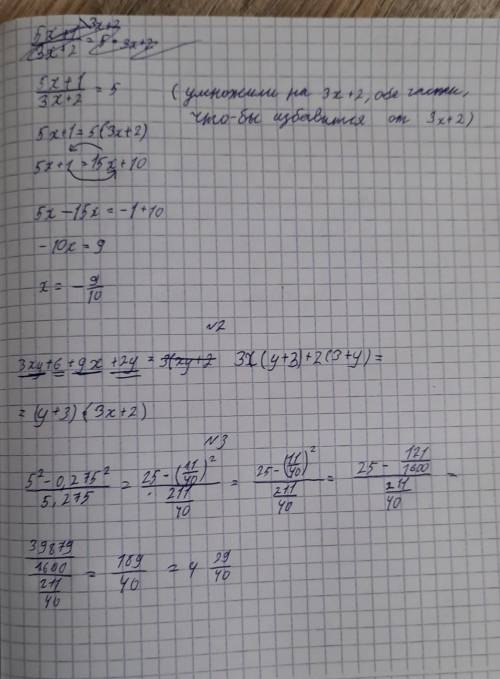 5x+1/3x+2 3x+2 = 5 · 3x+2
5x+1/3x+2 = 5 (умножили на 3x+2, обе части,
что-бы избавится от 3x+2)
5x+1=5(3x+2)
5x+1=15x+10
5x-15x=-1+10
-10x=9
x=-9/10
№2
3xy+6+9x+2y=3(xy+2 3x(y+3)+2(3+y)=
=(y+3)·(3x+2)
№3
5²-0,275²/5,275 = 25-(11/40)²/211/40 = 25-(11/40)²/211/40 = 25-121/1600/211/40 =
39879/1600/211/40 = 189/40 = 4 29/40